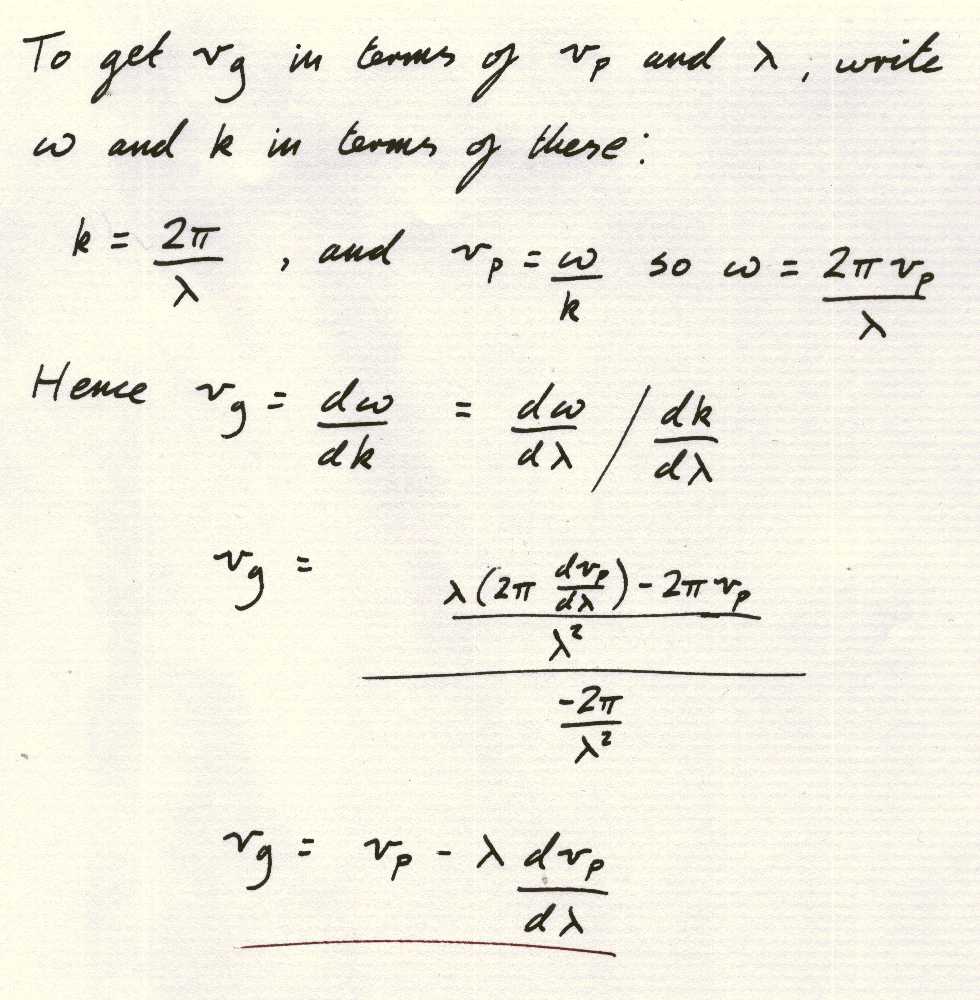 To get v_g in terms of v_p and λ, write
ω and k in terms of these:
k = 2π/λ , and v_p = ω/k so ω = 2πv_p/λ
Hence v_g = dω/dk = dω/dλ / dk/dλ
v_g = ((λ(2π dv_p/dλ) - 2πv_p)/λ²)/(-2π/λ²)
v_g = v_p - λ dv_p/dλ